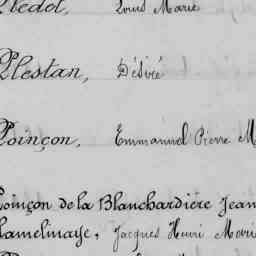 Louis Marie
Plestan, Désiré
Poinçon, Emmanuel Pierre M
Poinçon de la Blanchardière Jean
Hamelinaye, Jacques Henri Mari